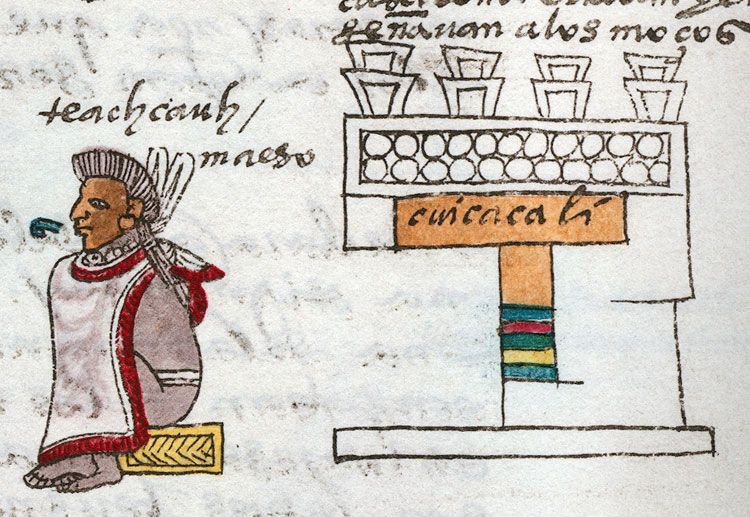 señavan a los mocos
teachcauh /
maeso
cuicacali